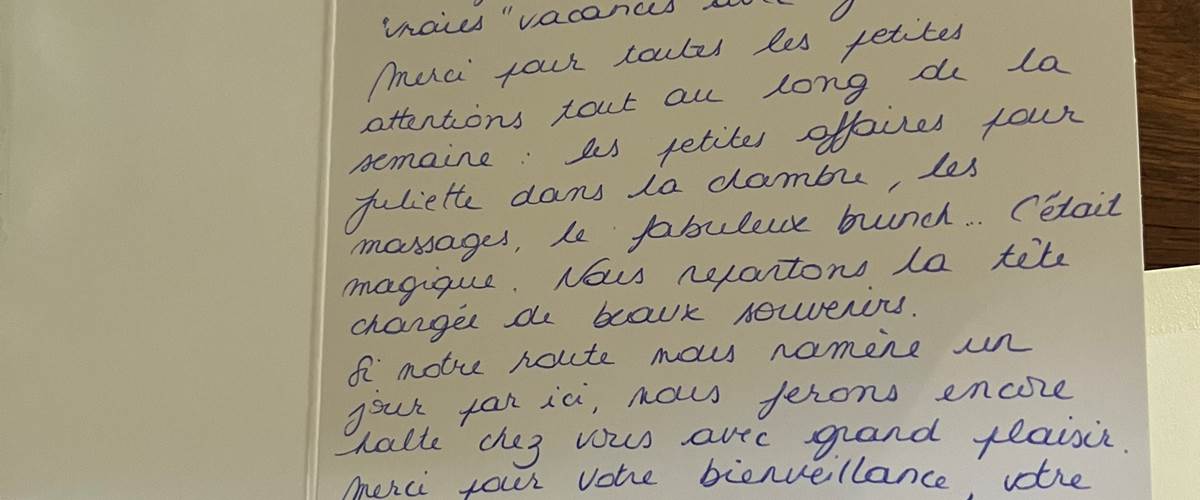 "vraies" vacances
Merci pour toutes les petites
attentions tout au long de la
semaine : les petites affaires pour
Juliette dans la chambre, les
massages, le fabuleux brunch... C'était
magique. Nous repartons la tête
chargée de beaux souvenirs.
Si notre route nous ramène un
jour par ici, nous ferons encore
halte chez vous avec grand plaisir.
Merci pour votre bienveillance, votre